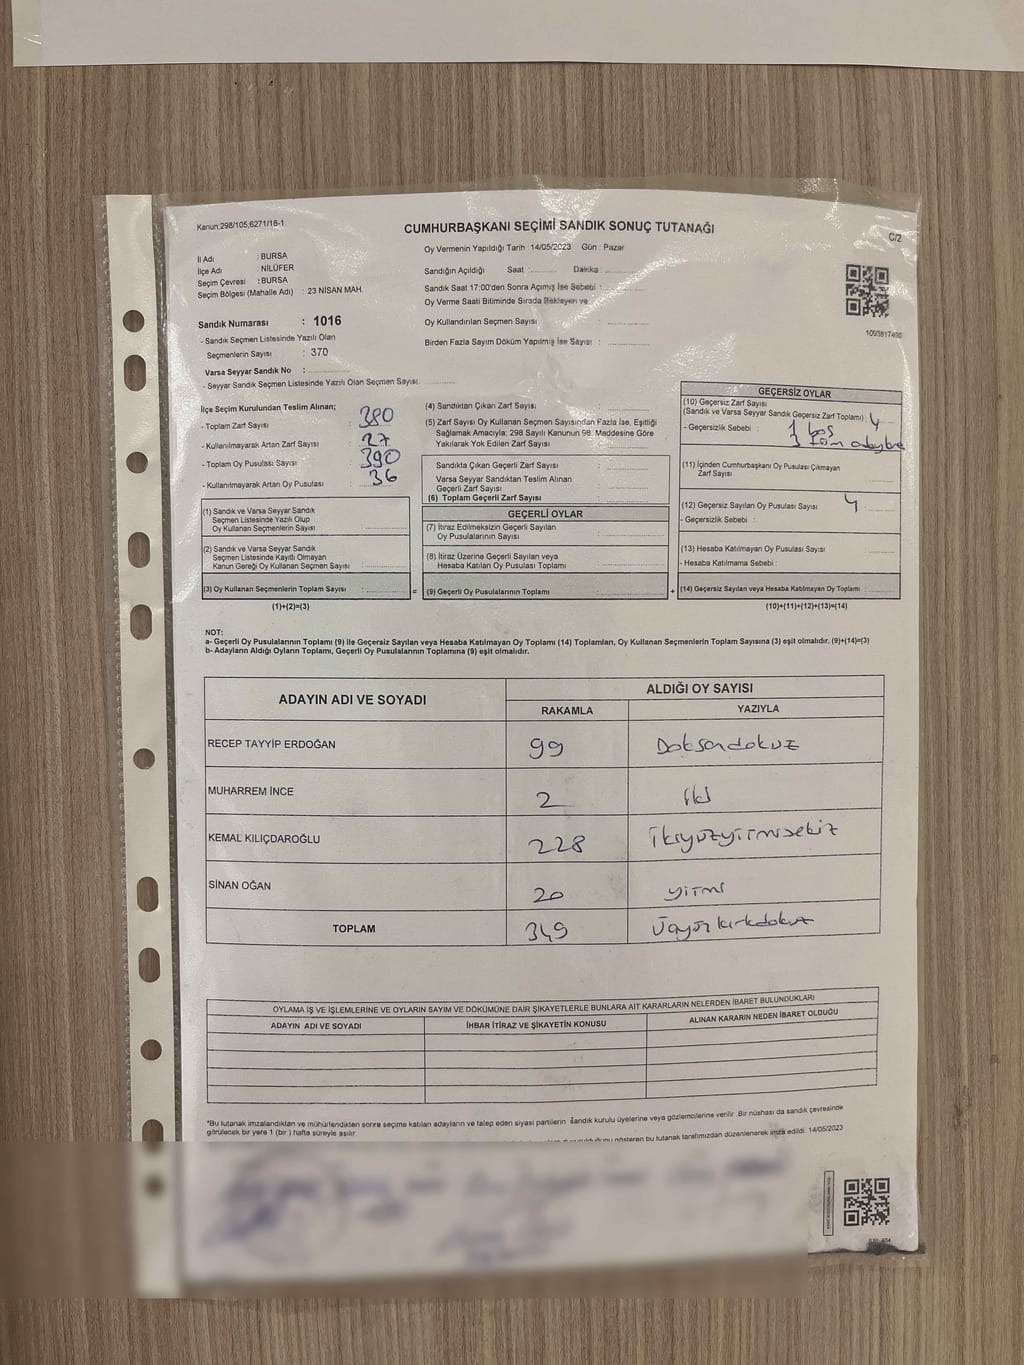 Kanun:298/105;6271/18-1
CUMHURBAŞKANI SEÇİMİ SANDIK SONUÇ TUTANAĞI
C/2
Oy Vermenin Yapıldığı Tarih :14/05/2023 Gün : Pazar
İl Adı : BURSA
İlçe Adı : NİLÜFER
Seçim Çevresi : BURSA
Seçim Bölgesi (Mahalle Adı) : 23 NİSAN MAH.
Sandığın Açıldığı Saat : Dakika :
Sandık Saat 17:00'den Sonra Açılmış İse Sebebi :
Oy Verme Saati Bitiminde Sırada Bekleyen ve
Oy Kullandırılan Seçmen Sayısı :
Birden Fazla Sayım Döküm Yapılmış İse Sayısı :
Sandık Numarası : 1016
- Sandık Seçmen Listesinde Yazılı Olan
Seçmenlerin Sayısı : 370
Varsa Seyyar Sandık No :
- Seyyar Sandık Seçmen Listesinde Yazılı Olan Seçmen Sayısı:
İlçe Seçim Kurulundan Teslim Alınan;
- Toplam Zarf Sayısı : 380
- Kullanılmayarak Artan Zarf Sayısı : 27
- Toplam Oy Pusulası Sayısı : 390
- Kullanılmayarak Artan Oy Pusulası : 36
(1) Sandık ve Varsa Seyyar Sandık
Seçmen Listesinde Yazılı Olup
Oy Kullanan Seçmenlerin Sayısı :
(2) Sandık ve Varsa Seyyar Sandık
Seçmen Listesinde Kayıtlı Olmayan
Kanun Gereği Oy Kullanan Seçmen Sayısı :
(3) Oy Kullanan Seçmenlerin Toplam Sayısı :
(1)+(2)=(3)
(4) Sandıktan Çıkan Zarf Sayısı :
(5) Zarf Sayısı Oy Kullanan Seçmen Sayısından Fazla İse, Eşitliği
Sağlamak Amacıyla, 298 Sayılı Kanunun 98. Maddesine Göre
Yakılarak Yok Edilen Zarf Sayısı :
Sandıkta Çıkan Geçerli Zarf Sayısı :
Varsa Seyyar Sandıktan Teslim Alınan
Geçerli Zarf Sayısı :
(6) Toplam Geçerli Zarf Sayısı :
GEÇERLİ OYLAR
(7) İtiraz Edilmeksizin Geçerli Sayılan
Oy Pusulalarının Sayısı :
(8) İtiraz Üzerine Geçerli Sayılan veya
Hesaba Katılan Oy Pusulası Toplamı :
= (9) Geçerli Oy Pusulalarının Toplamı : +
1093817490
GEÇERSİZ OYLAR
(10) Geçersiz Zarf Sayısı
(Sandık ve Varsa Seyyar Sandık Geçersiz Zarf Toplamı) : 4
- Geçersizlik Sebebi : 1 boş
3 tüm adaylara
(11) İçinden Cumhurbaşkanı Oy Pusulası Çıkmayan
Zarf Sayısı :
(12) Geçersiz Sayılan Oy Pusulası Sayısı : 4
- Geçersizlik Sebebi :
(13) Hesaba Katılmayan Oy Pusulası Sayısı :
- Hesaba Katılmama Sebebi :
(14) Geçersiz Sayılan veya Hesaba Katılmayan Oy Toplamı :
(10)+(11)+(12)+(13)=(14)
NOT:
a- Geçerli Oy Pusulalarının Toplamı (9) ile Geçersiz Sayılan veya Hesaba Katılmayan Oy Toplamı (14) Toplamları, Oy Kullanan Seçmenlerin Toplam Sayısına (3) eşit olmalıdır. (9)+(14)=(3)
b- Adayların Aldığı Oyların Toplamı, Geçerli Oy Pusulalarının Toplamına (9) eşit olmalıdır.
ADAYIN ADI VE SOYADI
ALDIĞI OY SAYISI
RAKAMLA YAZIYLA
RECEP TAYYİP ERDOĞAN 99 Doksandokuz
MUHARREM İNCE 2 iki
KEMAL KILIÇDAROĞLU 228 ikiyüzyirmisekiz
SİNAN OĞAN 20 yirmi
TOPLAM 349 üçyüzkırkdokuz
OYLAMA İŞ VE İŞLEMLERİNE VE OYLARIN SAYIM VE DÖKÜMÜNE DAİR ŞİKAYETLERLE BUNLARA AİT KARARLARIN NELERDEN İBARET BULUNDUKLARI
ADAYIN ADI VE SOYADI İHBAR İTİRAZ VE ŞİKAYETİN KONUSU ALINAN KARARIN NEDEN İBARET OLDUĞU
*Bu tutanak imzalandıktan ve mühürlendikten sonra seçime katılan adayların ve talep eden siyasi partilerin sandık kurulu üyelerine veya gözlemcilerine verilir. Bir nüshası da sandık çevresinde
görülecek bir yere 1 (bir) hafta süreyle asılır.
gösteren bu tutanak tarafımızdan düzenlenerek imza edildi. 14/05/2023